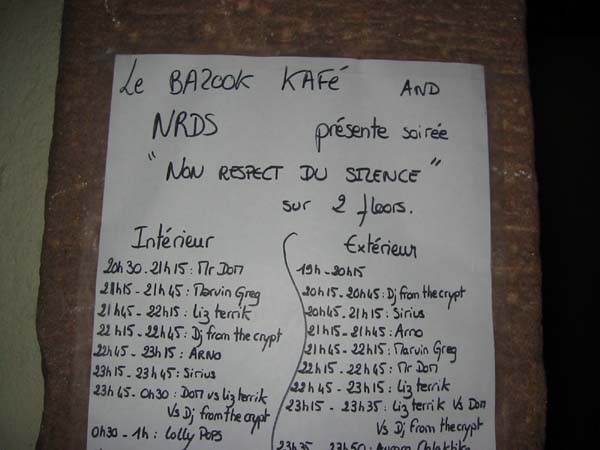 Le BAZOOK KAFé AND
NRDS présente soirée
"NON RESPECT DU SILENCE"
sur 2 floors.
Intérieur
20h30-21h15: Mr Dom
21h15-21h45: Marvin Greg
21h45-22h15: Liz terrik
22h15-22h45: Dj from the crypt
22h45-23h15: ARNO
23h15-23h45: Sirius
23h45-0h30: Dom vs Liz terrik
Vs Dj from the crypt
0h30-1h: Lolly POPS
Extérieur
19h-20h15
20h15-20h45: Dj from the crypt
20h45-21h15: Sirius
21h15-21h45: Arno
21h45-22h15: Marvin Greg
22h15-22h45: Mr Dom
22h45-23h15: Liz terrik
23h15-23h35: Liz terrik Vs Dom
Vs Dj from the crypt
23h35-23h50: